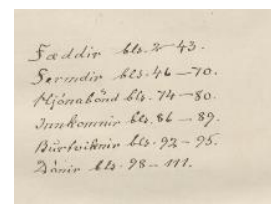 Fæddir bls. 2-43.
Fermdir bls. 46-70.
Hjónabönd bls. 74-80.
Innkomnir bls. 86-89.
Burtviknir bls. 92-95.
Dánir bls. 98-111.